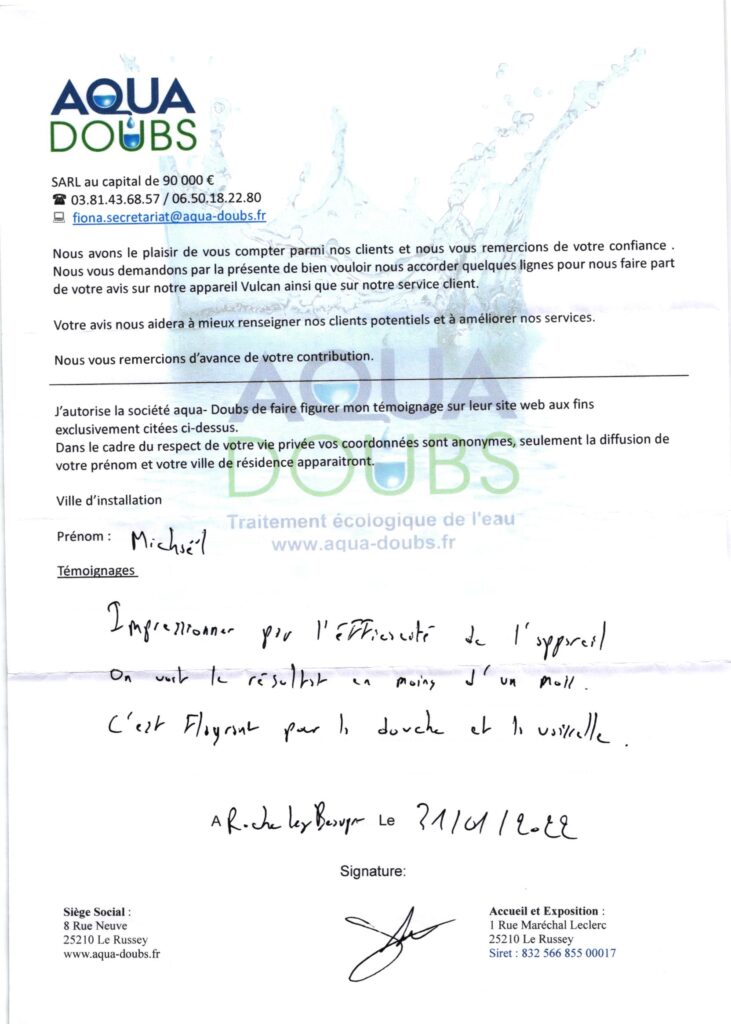 AQUA
DOUBS
SARL au capital de 90 000 €
☎ 03.81.43.68.57 / 06.50.18.22.80
💻 fiona.secretariat@aqua-doubs.fr
Nous avons le plaisir de vous compter parmi nos clients et nous vous remercions de votre confiance .
Nous vous demandons par la présente de bien vouloir nous accorder quelques lignes pour nous faire part
de votre avis sur notre appareil Vulcan ainsi que sur notre service client.
Votre avis nous aidera à mieux renseigner nos clients potentiels et à améliorer nos services.
Nous vous remercions d'avance de votre contribution.
AQUA
J'autorise la société aqua- Doubs de faire figurer mon témoignage sur leur site web aux fins
exclusivement citées ci-dessus.
Dans le cadre du respect de votre vie privée vos coordonnées sont anonymes, seulement la diffusion de
votre prénom et votre ville de résidence apparaitront.
DOUBS
Ville d'installation
Traitement écologique de l'eau
www.aqua-doubs.fr
Prénom : Michaël
Témoignages
Impressionner par l'éfficacité de l'appareil
On voit le résultat en moins d'un
C'est Flagrant pour la douche et la vaisselle.
A Roche lez Beaupre Le 31/01/2022
Signature:
Siège Social :
8 Rue Neuve
25210 Le Russey
www.aqua-doubs.fr
Accueil et Exposition :
1 Rue Maréchal Leclerc
25210 Le Russey
Siret : 832 566 855 00017